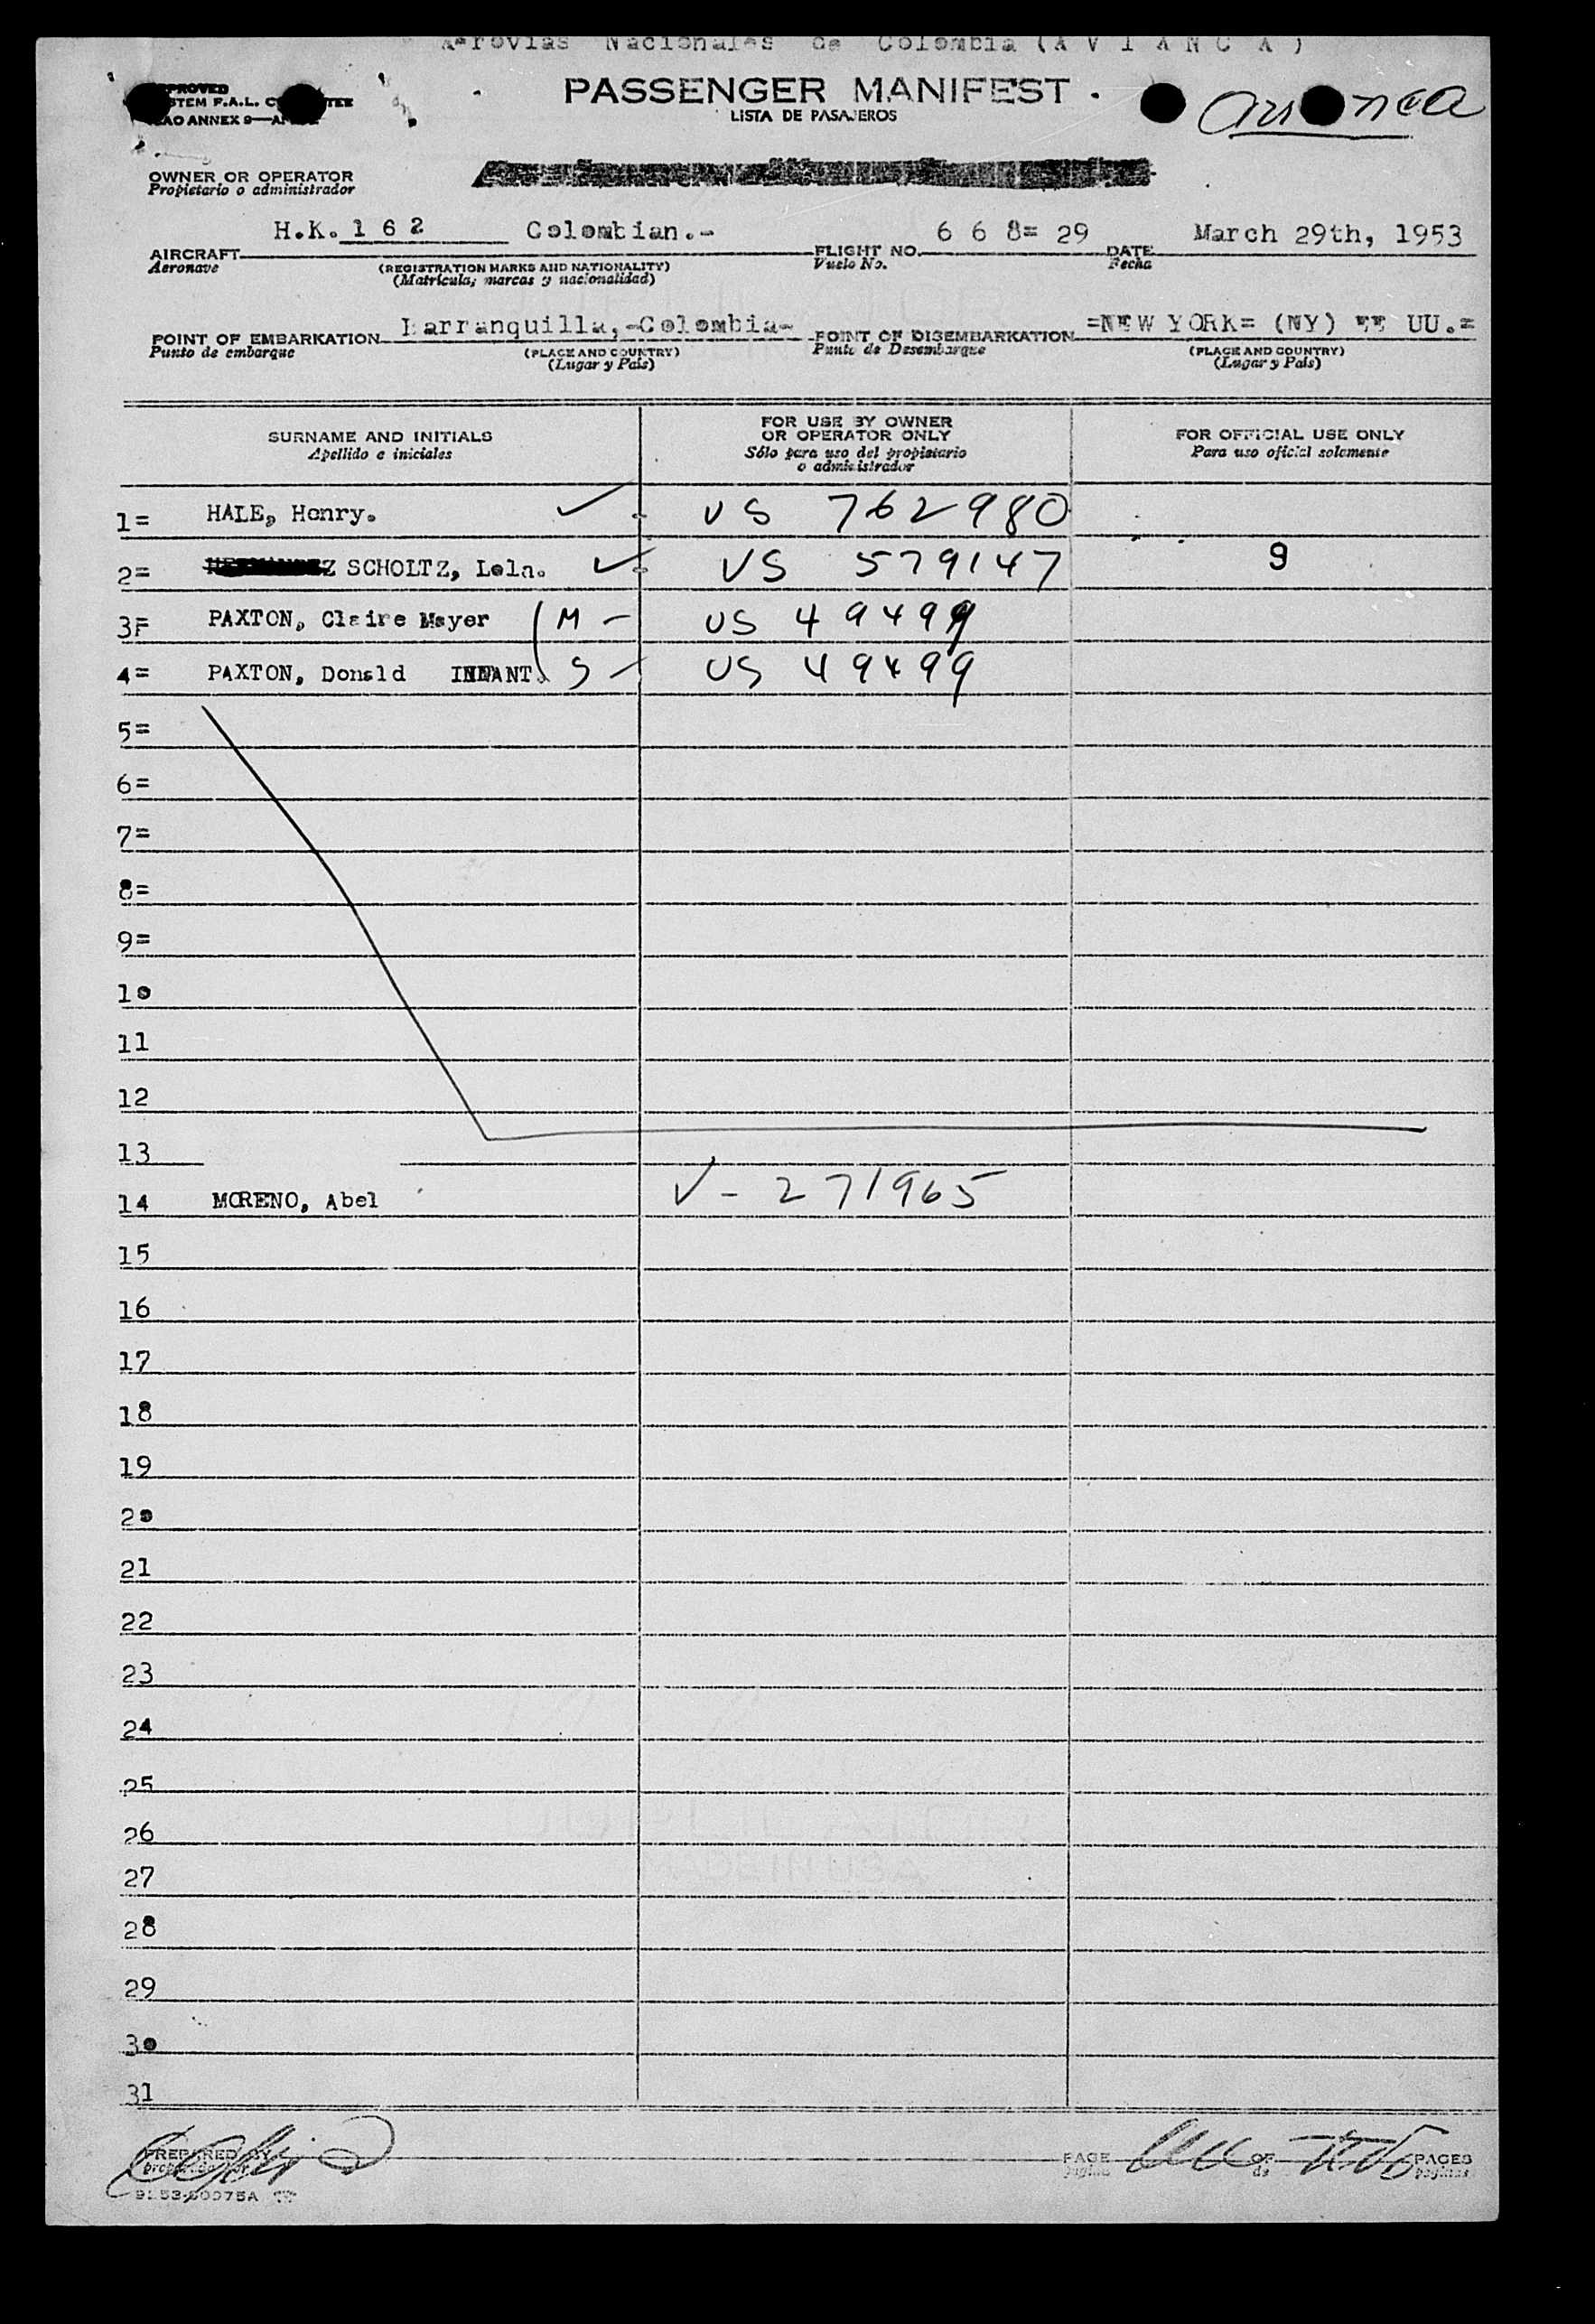 Aerovias Nacionales de Colombia (A V I A N C A)
PASSENGER MANIFEST
LISTA DE PASAJEROS
OWNER OR OPERATOR
Propietario o administrador
H.K. 1 6 2 Colombian.-
6 6 8= 29
March 29th, 1953
AIRCRAFT
Aeronave
(REGISTRATION MARKS AND NATIONALITY)
(Matrícula, marcas y nacionalidad)
FLIGHT NO.
Vuelo No.
DATE
Fecha
POINT OF EMBARKATION Barranquilla,-Colombia-
Punto de embarque
(PLACE AND COUNTRY)
(Lugar y País)
POINT OF DISEMBARKATION =NEW YORK= (NY) EE UU.=
Punto de Desembarque
(PLACE AND COUNTRY)
(Lugar y País)
SURNAME AND INITIALS
Apellido e iniciales
FOR USE BY OWNER
OR OPERATOR ONLY
Sólo para uso del propietario
o administrador
FOR OFFICIAL USE ONLY
Para uso oficial solamente
1= HALE, Henry. US 762980
2= SCHOLTZ, Lola. VS 579147 9
3= PAXTON, Claire Mayer M US 49499
4= PAXTON, Donald INFANT. S US 49499
5=
6=
7=
8=
9=
10
11
12
13
14 MORENO, Abel V- 271965
15
16
17
18
19
20
21
22
23
24
25
26
27
28
29
30
31
PREPARED BY
PAGE
página
OF
de
PAGES
páginas